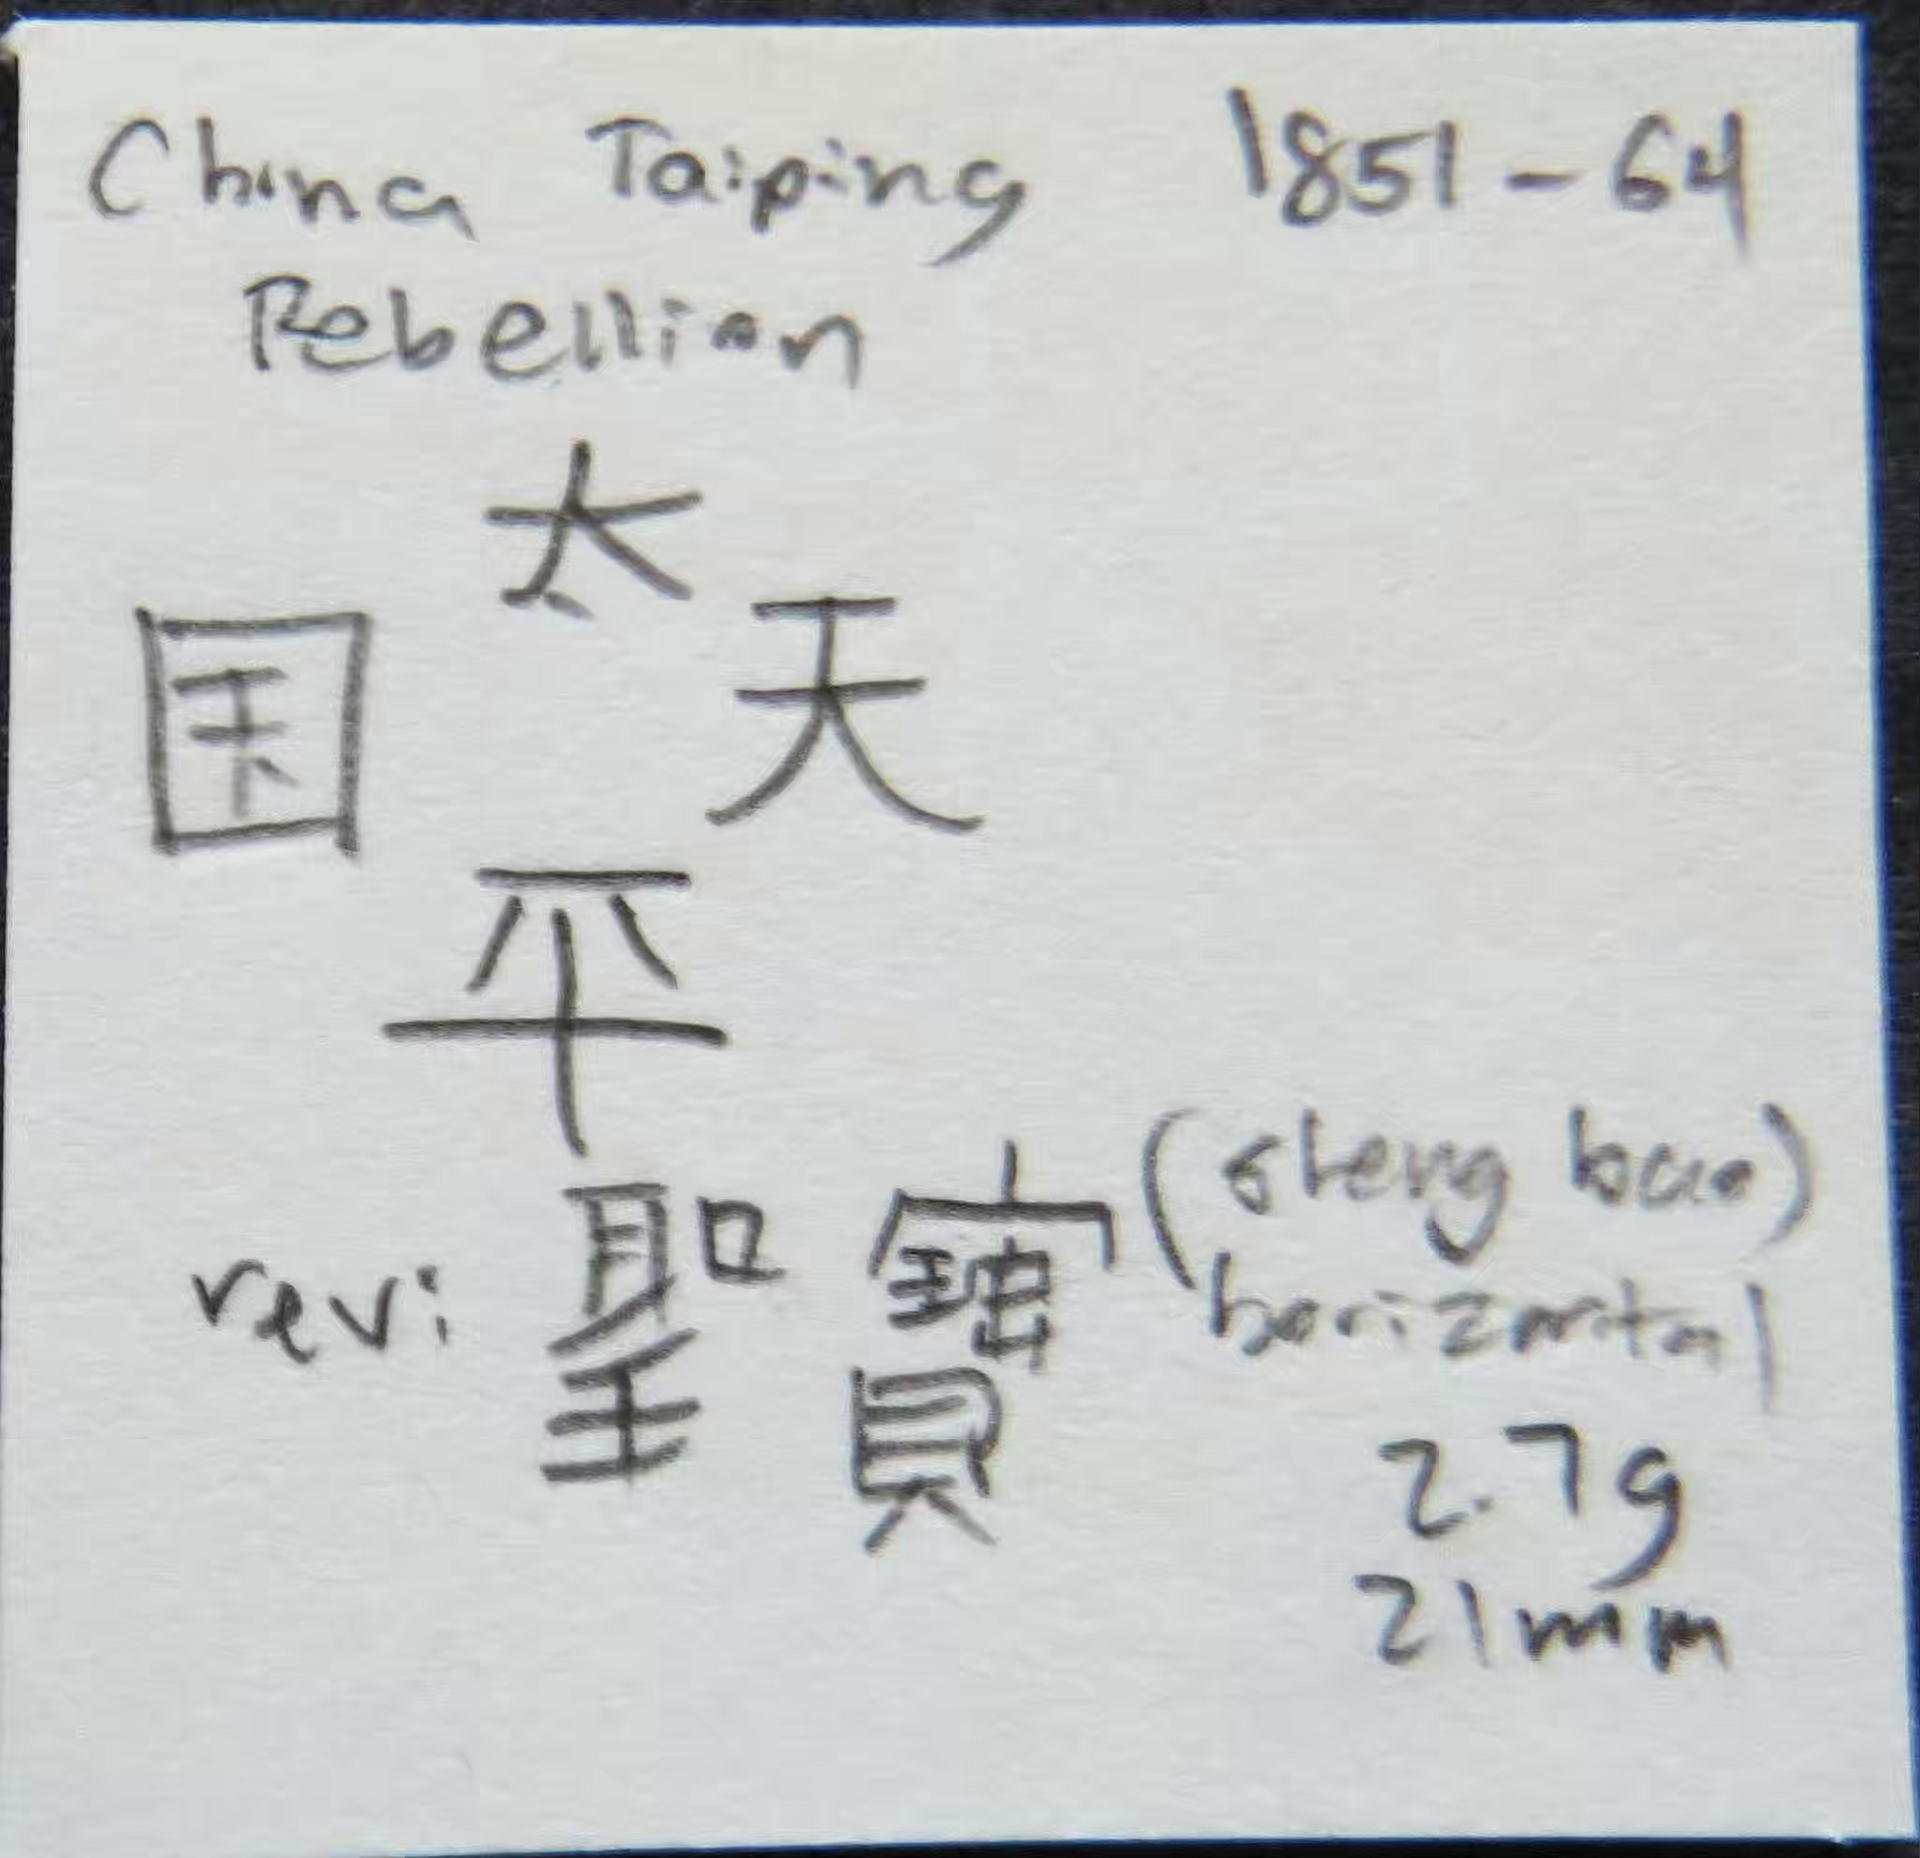 China Taiping 1851-64
Rebellion
太
国 天
平
rev: 聖 寶 (sheng bao)
horizontal
2.7g
21mm